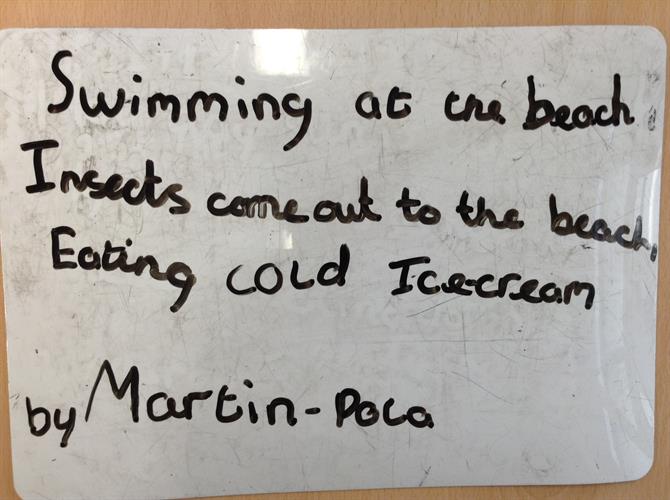 Swimming at the beach
Insects come out to the beach,
Eating cold Icecream
by Martin-Pola